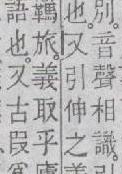 別。音聲相識。
也。又引伸之義
旅。義取乎廬
語也。又古叚爲